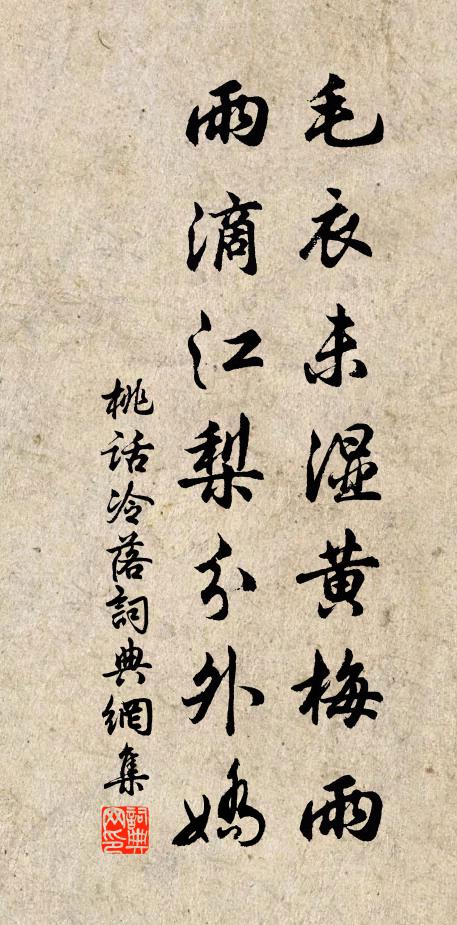 毛衣未湿黄梅雨
雨滴江梨分外娇
桃话冷落詞典網集
詞典网印